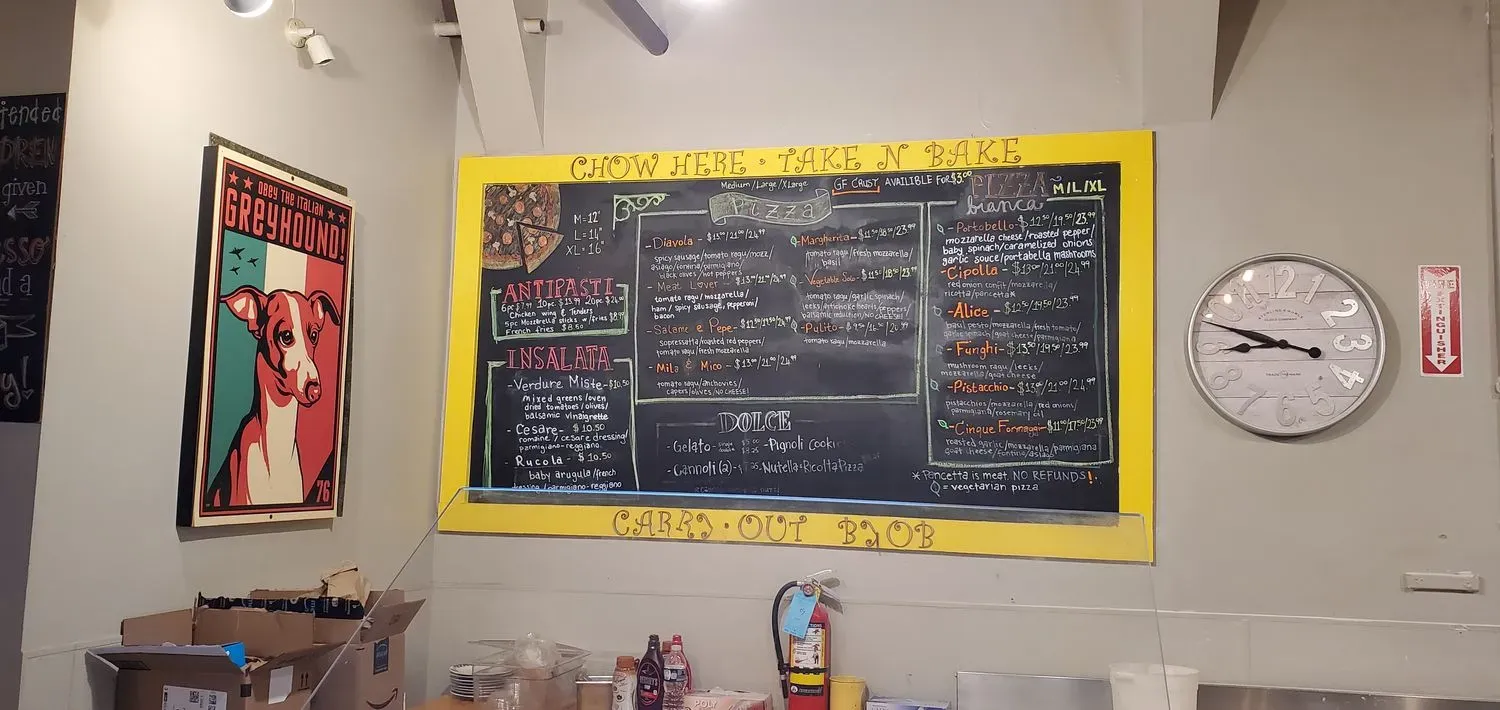 tended
DREN
given
esso
d a
y!
OBEY THE ITALIAN
GREYHOUND!
76
CHOW HERE • TAKE N' BAKE
M=12"
L=14"
XL=16"
ANTIPASTI
Chicken wing & Tenders
5pc Mozzarella sticks w/fries $8.99
French fries $8.50
INSALATA
-Verdure Miste-$10.50
mixed greens/oven
dried tomatoes/olives/
balsamic vinaigrette
- Cesare- $10.50
romaine/cesare dressing/
parmigiano-reggiano
- Rucola - $10.50
baby arugula/french
dressing/parmigiano-reggiano
Medium/Large/XLarge
GF CRUST AVAILIBLE FOR $3.00
Pizza
-Diavola -
spicy sausage/tomato ragu/mozz/
asiago/fontina/parmigiano/
black olives/hot peppers
-Meat Lover -
tomato ragu/mozzarella/
ham/spicy sausage, pepperoni/
bacon
-Salame e Pepe-
sopressatta/roasted red peppers/
tomato ragu/fresh mozzarella
-Mila & Mico -
tomato ragu/anchovies/
capers/olives/NO CHEESE!
-Margherita-
tomato ragu/fresh mozzarella/
basil
-Vegetable Solo-
tomato ragu/garlic spinach/
leeks/artichoke hearts/peppers/
balsamic reduction/NO CHEESE!
-Pulito-
tomato ragu/mozzarella
DOLCE
-Gelato
-Pignoli Cookie
-Cannoli (2)-
-Nutella+Ricolta Pizza
PIZZA ~ M/L/XL
bianca
-Portobello- $12.50/19.50/23.99
mozzarella cheese/roasted pepper/
baby spinach/caramelized onions
garlic souce/portabella mashrooms
-Cipolla -
red onion confit/mozzarella/
ricotta/pancetta*
-Alice -
basil pesto/mozzarella/fresh tomato/
garlic spinach/goat cheese/parmigiana
-Funghi-
mushroom ragu/leeks/
mozzarella/goat cheese
-Pistacchio-
pistachios/mozzarella/red onions/
parmigiana/rosemary oil
-Cinque Formaggi-
roasted garlic/mozzarella/parmigiana
goat cheese/fontina/asiago
* Pancetta is meat. NO REFUNDS!.
= vegetarian pizza
CARRY • OUT BYOB
12
1
2
3
4
5
6
7
8
9
10
11
FIRE
EXTINGUISHER
POLY